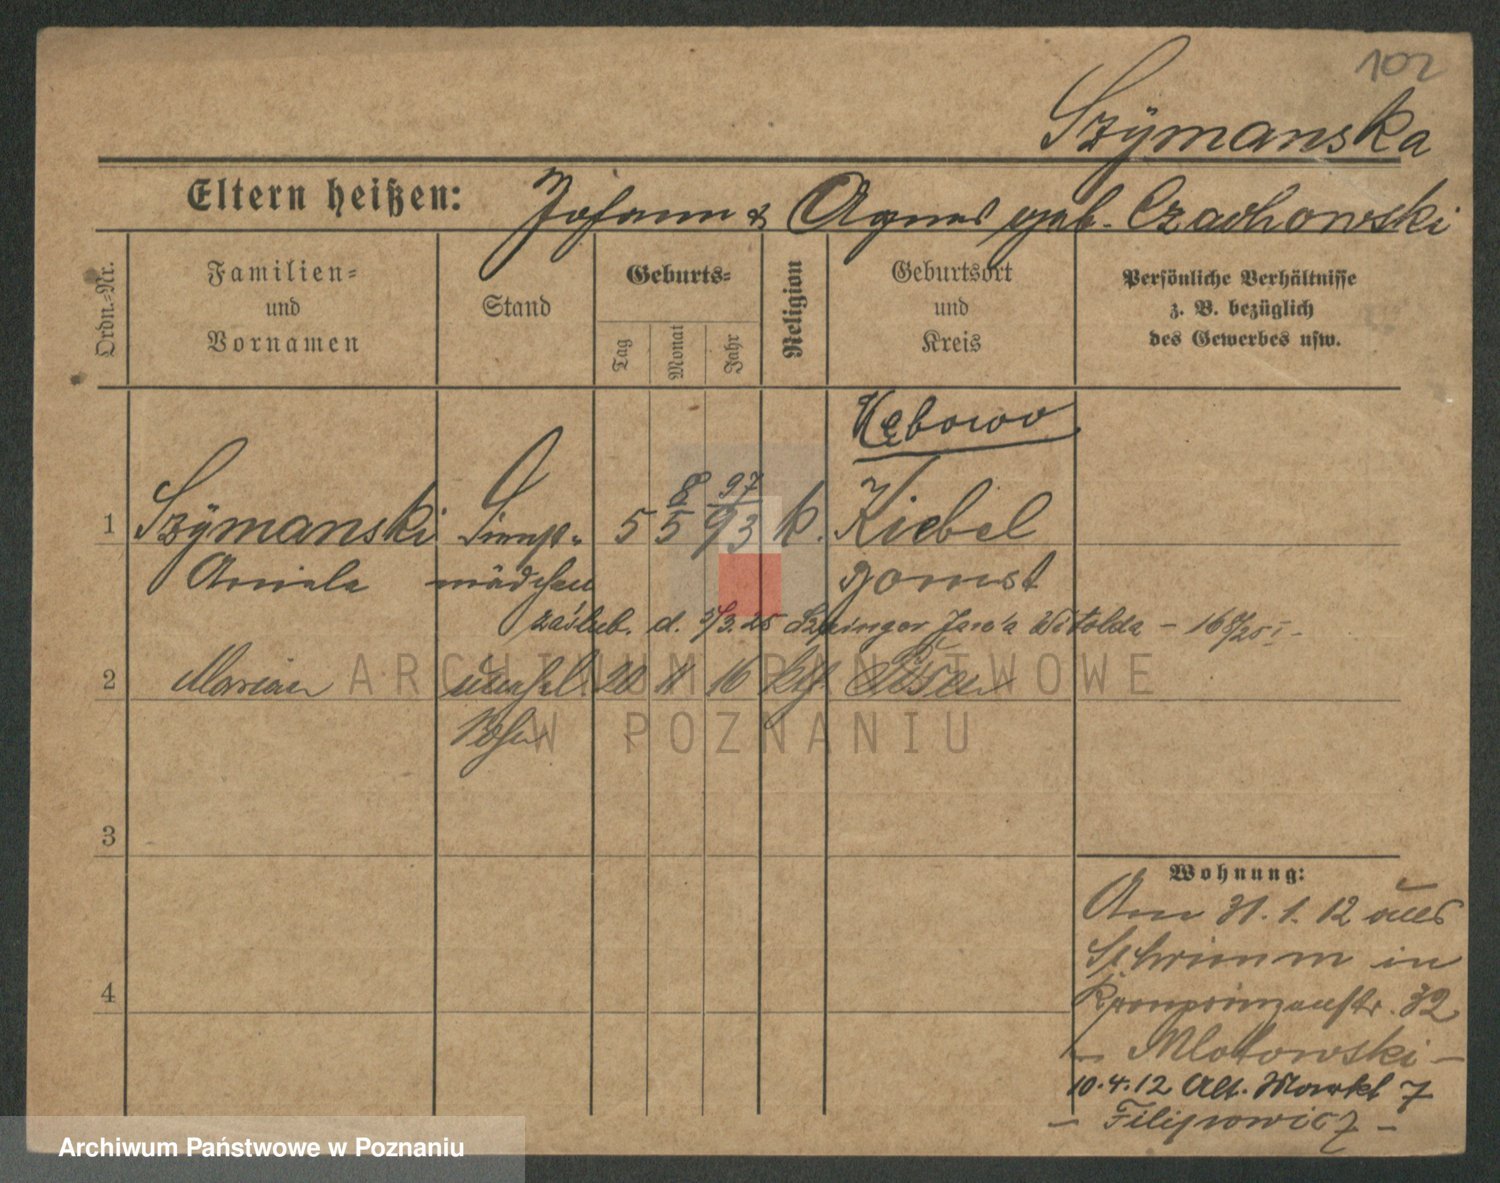 102
Szÿmanska
Eltern heißen: Johann & Agnes geb. Czachowski
Ordn.-Nr.
Familien- und Vornamen
Stand
Geburts-
Tag
Monat
Jahr
Religion
Geburtsort und Kreis
Persönliche Verhältnisse z. B. bezüglich des Gewerbes usw.
Kębowo
8 97
1 Szÿmanski Dienst- 5 5 93 k. Kiebel
Aniela mädchen Bomst
zaślub. d. 3. 25 Szpinger Jana Witolda
2 Marian unehel 20 11 16 kth. Posen
Sohn
3
4
Wohnung:
Am 31.1.12 aus
Schrimm in
Kronprinzenstr. 32
Mlotowski -
10.4.12 Alt. Markt 7
- Filipowicz -
ARCHIWUM PAŃSTWOWE
W POZNANIU
Archiwum Państwowe w Poznaniu